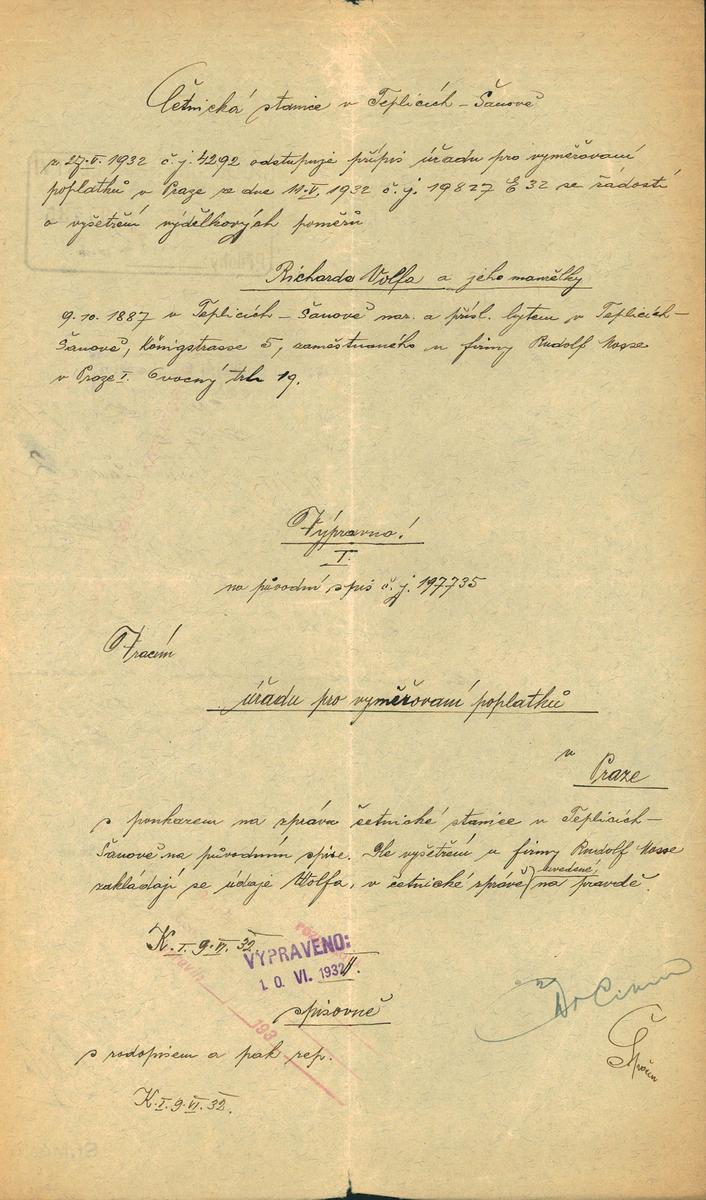 Četnická stanice v Teplicích – Šanově
z 27.V. 1932 č.j. 4292 odstupuje přípis úřadu pro vyměřovaní
poplatků v Praze ze dne 11.V. 1932 č.j. 19827 E 32 se žádostí
o vyšetření výdělkových poměrů
Richarda Volfa a jeho manželky
9.10. 1887 v Teplicích – Šanově nar. a přísl. bytem v Teplicích –
Šanově, Königstrasse 5, zaměstnaného u firmy Rudolf Mosse
v Praze I. Ovocný trh 19.
Výpravna!
I.
na původní spis č.j. 197735
Vracím
úřadu pro vyměřovaní poplatků
v
Praze
s poukazem na zprávu četnické stanice v Teplicích –
Šanově na původním spise. Dle vyšetření u firmy Rudolf Mosse
zakládají se údaje Wolfa, v četnické zprávě uvedené, na pravdě.
K. I. 9.VI. 32.
VYPRAVENO:
10. VI. 1932
II.
spisovně
193
s rodopisem a pak rep.
K. I. 9.VI. 32.